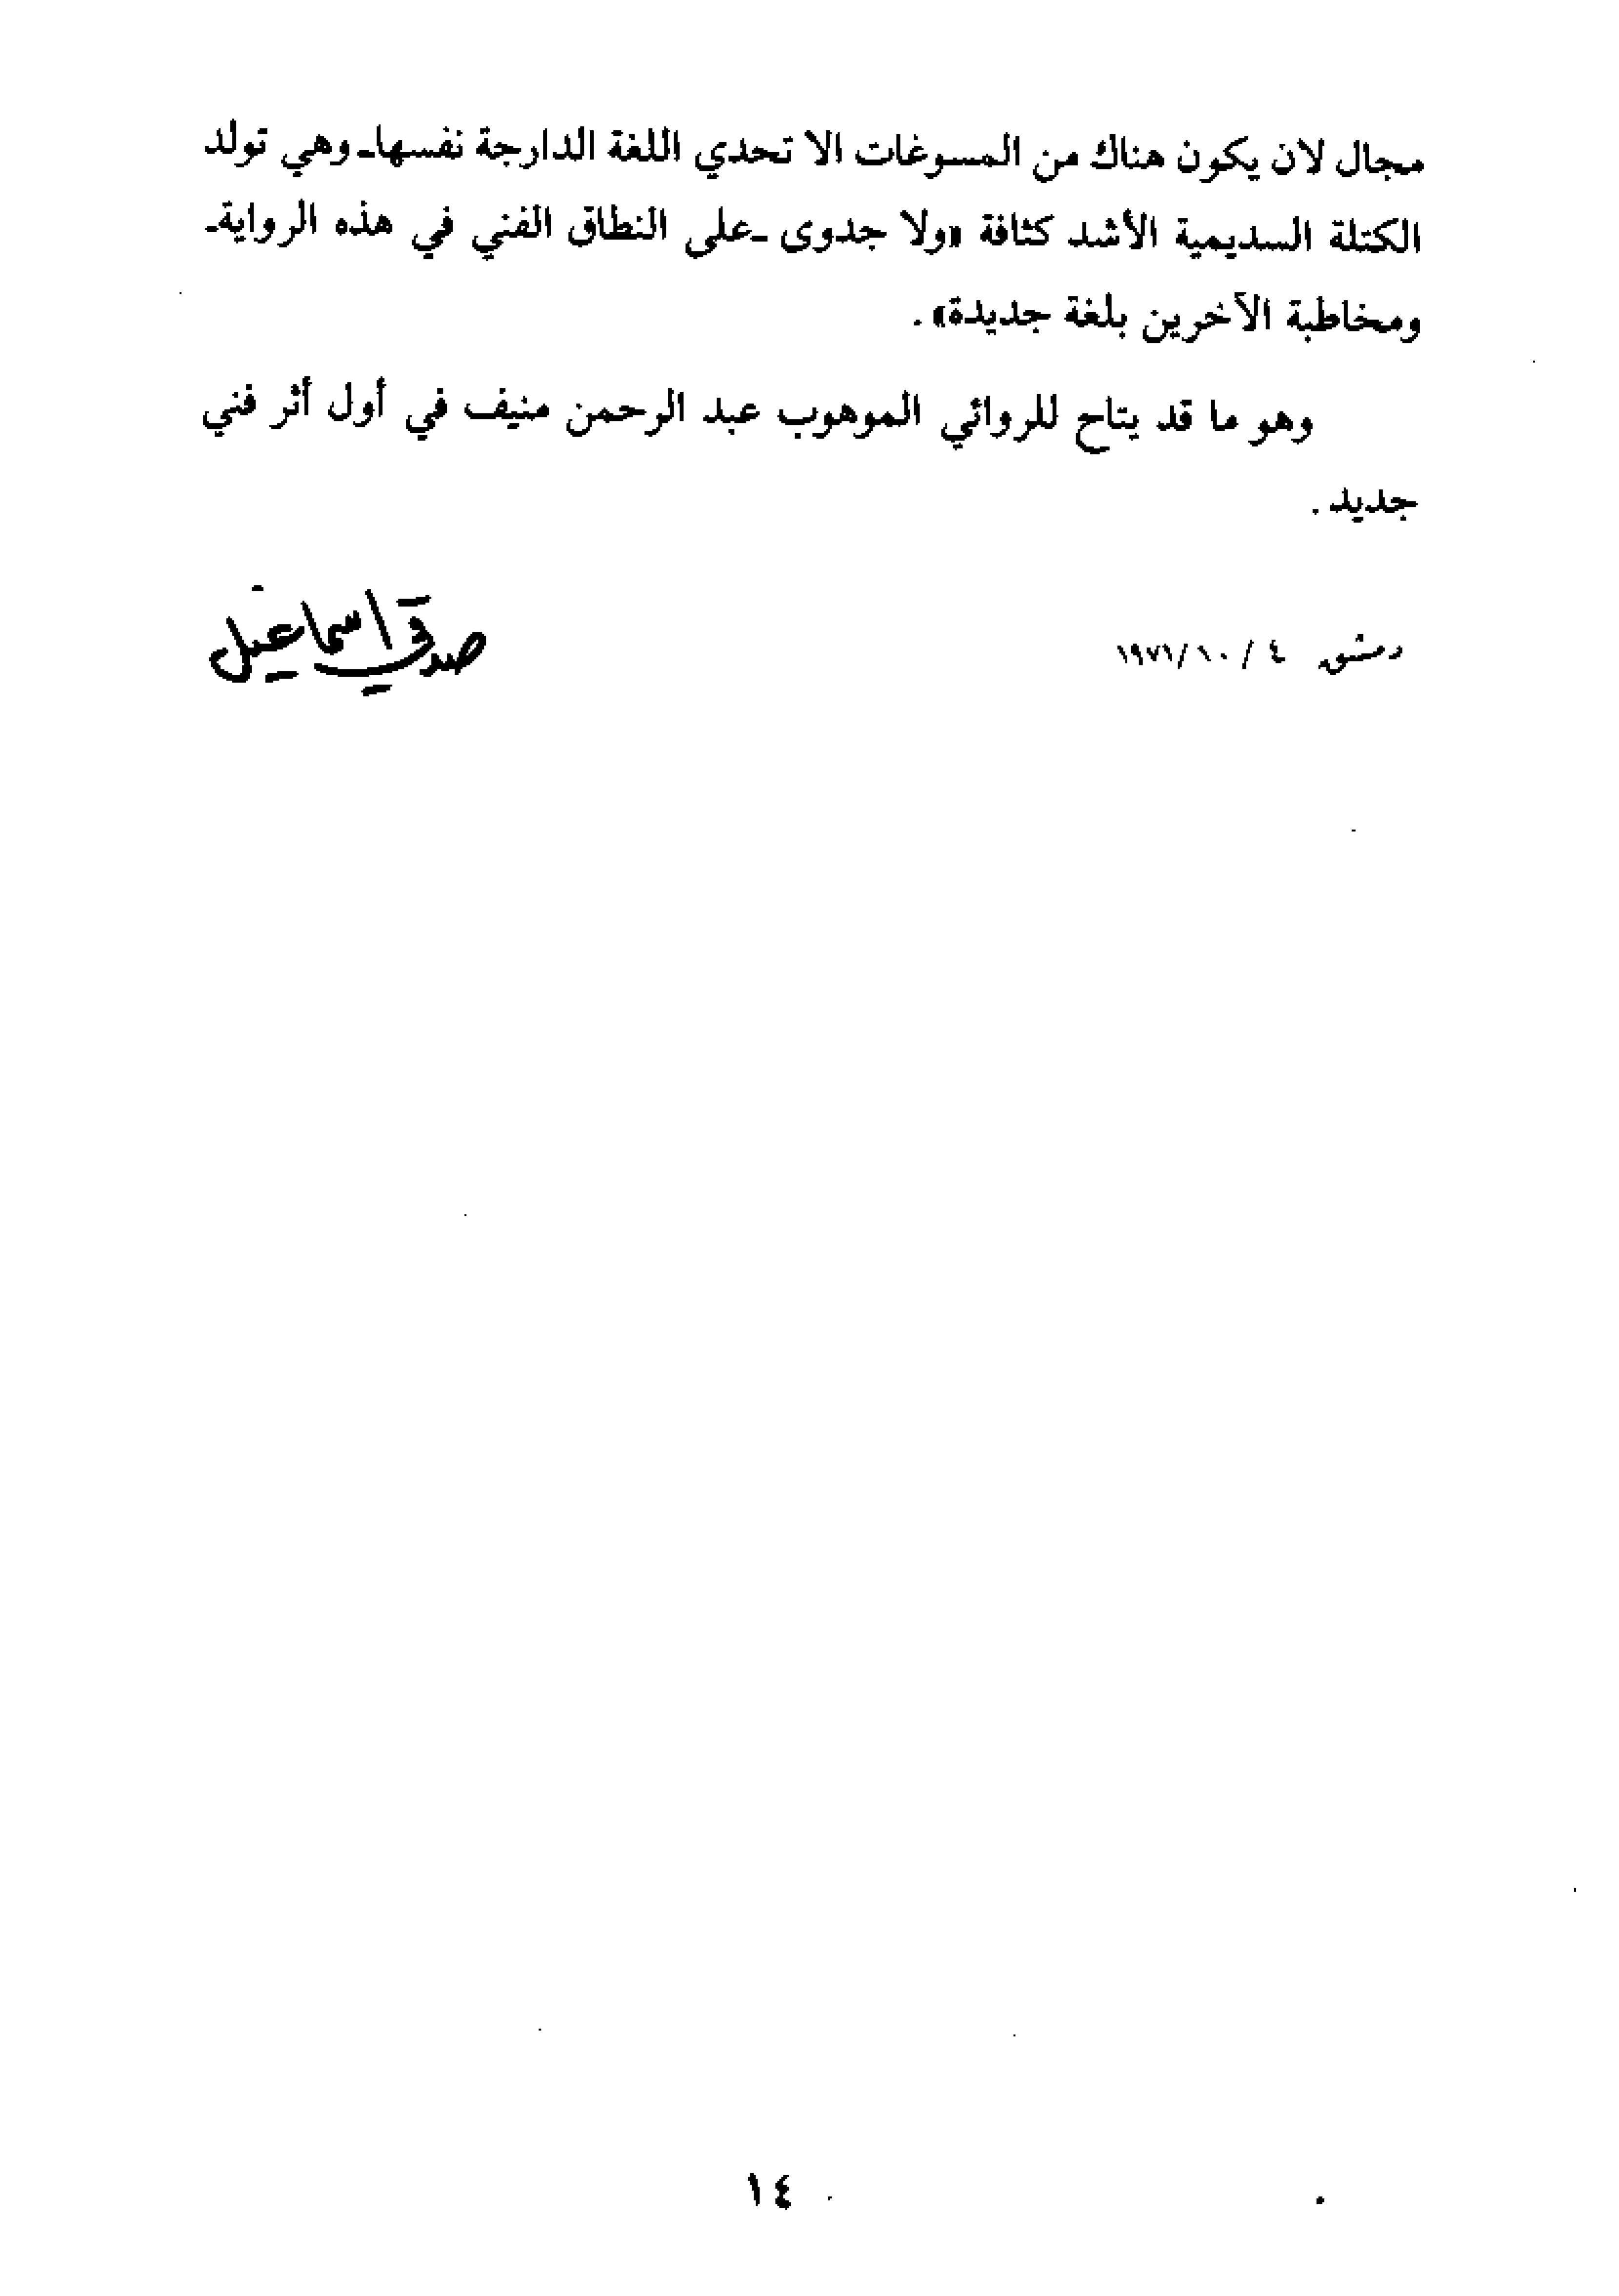 مجال لان يكون هناك من المسوغات الا تحدي اللغة الدارجة نفسها ـ وهي تولد
الكتلة السديمية الأشد كثافة «ولا جدوى ـ على النطاق الفني في هذه الرواية ـ
ومخاطبة الآخرين بلغة جديدة» .
وهو ما قد يتاح للروائي الموهوب عبد الرحمن منيف في أول أثر فني
جديد .
دمشق ٤ / ١٠ / ١٩٧١
صدقي اسماعيل
١٤